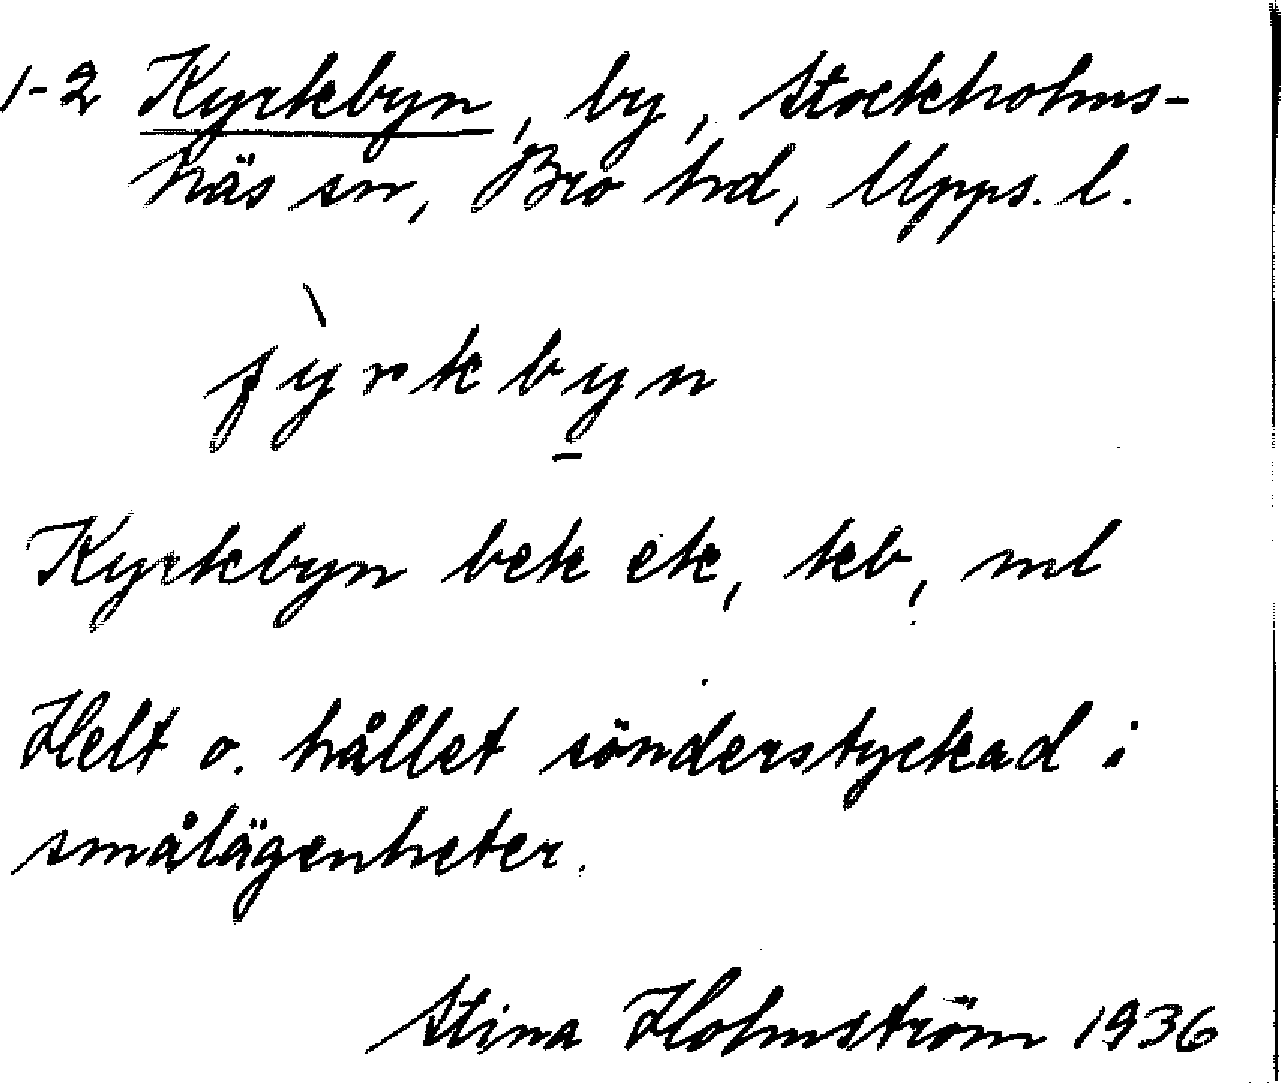 1-2 Kyrkbyn, by, Stockholms-
näs sn, Bro hd, Upps. l.
fỳrkby̲n
Kyrkbyn bek ek, kb, ml
Helt o. hållet sönderstyckad i
smålägenheter.
Stina Holmström 1936